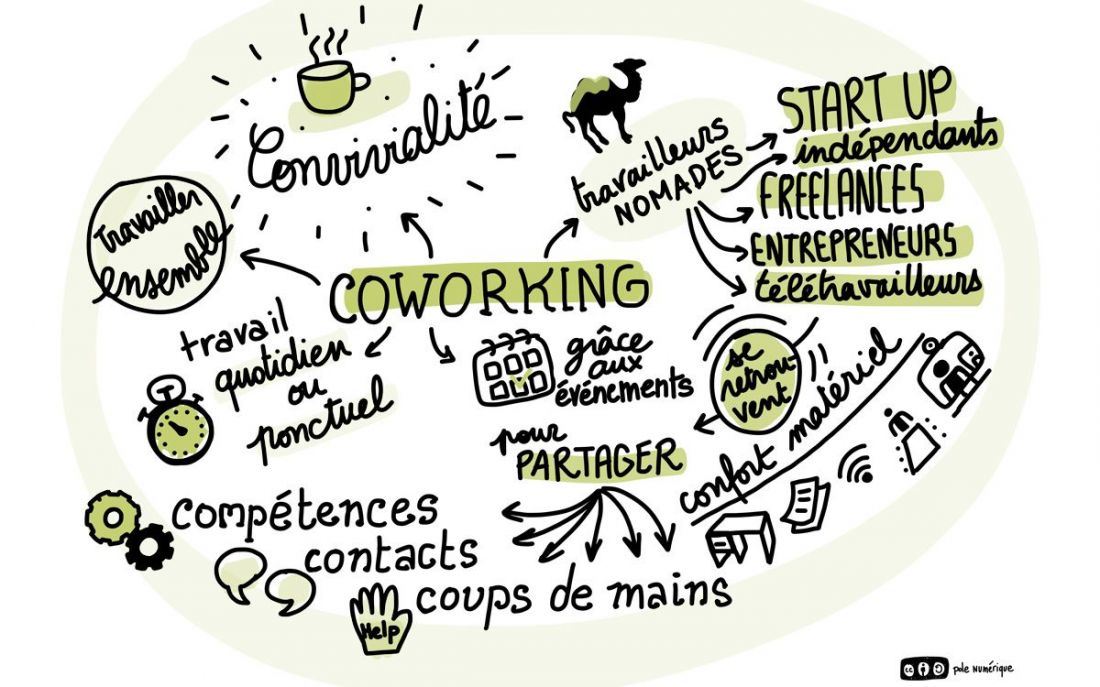 Convivialité
travailleurs
NOMADES
START UP
indépendants
FREELANCES
ENTREPRENEURS
télétravailleurs
travailler
ensemble
COWORKING
travail
quotidien
ou
ponctuel
grâce
aux
événements
se
retrou-
vent
pour
PARTAGER
confort matériel
compétences
contacts
coups de mains
Help
cc
pole numérique